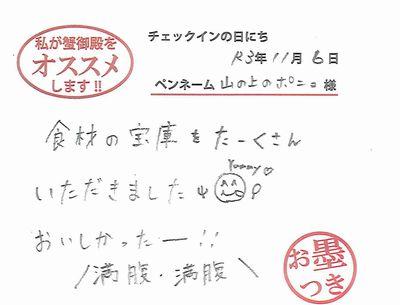 私が蟹御殿を
オススメ
します!!
チェックインの日にち
R3年11月6日
ペンネーム 山の上のポニョ 様
食材の宝庫をたーくさん
Yummy♡
いただきましたψ
おいしかったー!!
/満腹・満腹\
お墨
つき